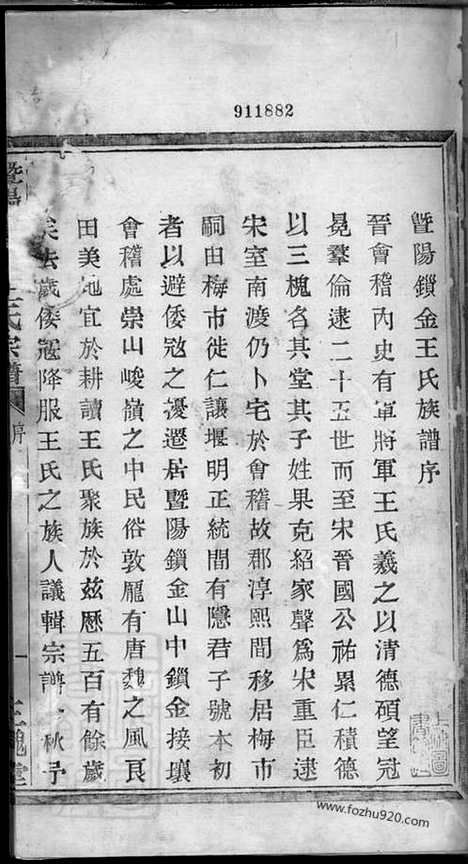 911882
暨陽鎖金王氏族譜序
晉會稽內史右軍將軍王氏羲之以清德碩望冠
冕羣倫逮二十五世而至宋晉國公祐累仁積德
以三槐名其堂其子姓果克紹家聲爲宋重臣逮
宋室南渡仍卜宅於會稽故郡淳熙間移居梅市
嗣由梅市徙仁讓堰明正統間有隱君子號本初
者以避倭寇之擾遷居暨陽鎖金山中鎖金接壤
會稽處崇山峻嶺之中民俗敦龐有唐魏之風良
田美地宜於耕讀王氏聚族於茲歷五百有餘歲
矣去歲倭寇降服王氏之族人議輯宗譜
秋予
王氏宗譜
序
一
三槐堂
www.fozhu920.com